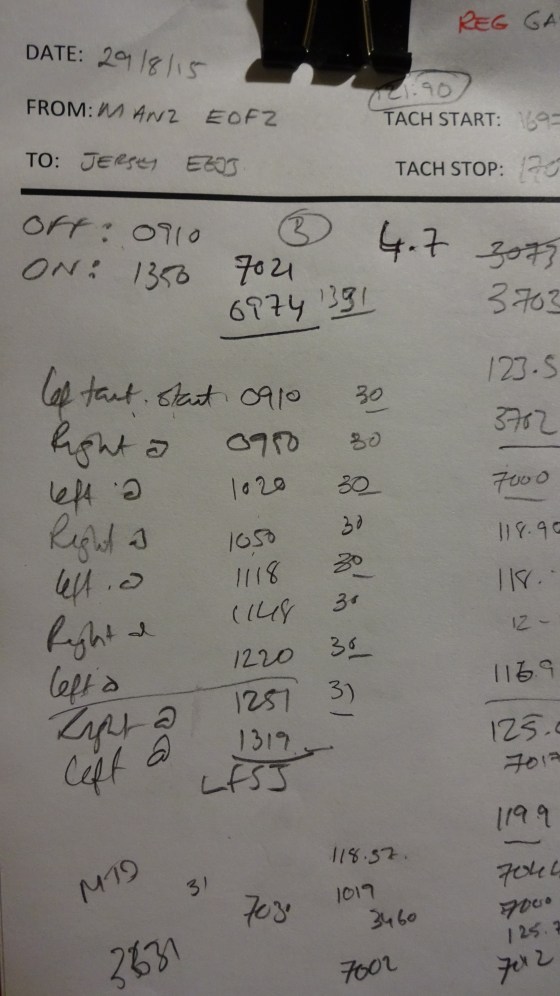 REG GA
DATE: 29/8/15
121.90
FROM: MANZ EDFZ
TACH START: 169
TO: JERSEY
TACH STOP: 170
OFF: 0910 3 4.7 3073
ON: 1350 7021
6974 1351 3703
123.5
Left tank. start 0910 30
3702
Right @ 0950 30
Left @ 1020 30 7000
Right @ 1050 30 118.90
Left @ 1118 30 118.
Right @ 1148 30 12-
Left @ 1220 30 1169
Right @ 1251 31 125.
Left @ 1319 7017
LFSJ
119 9
118.57.
MTD 31 1019 7044
7030 3460 7000
125.7
3631 7002 7042